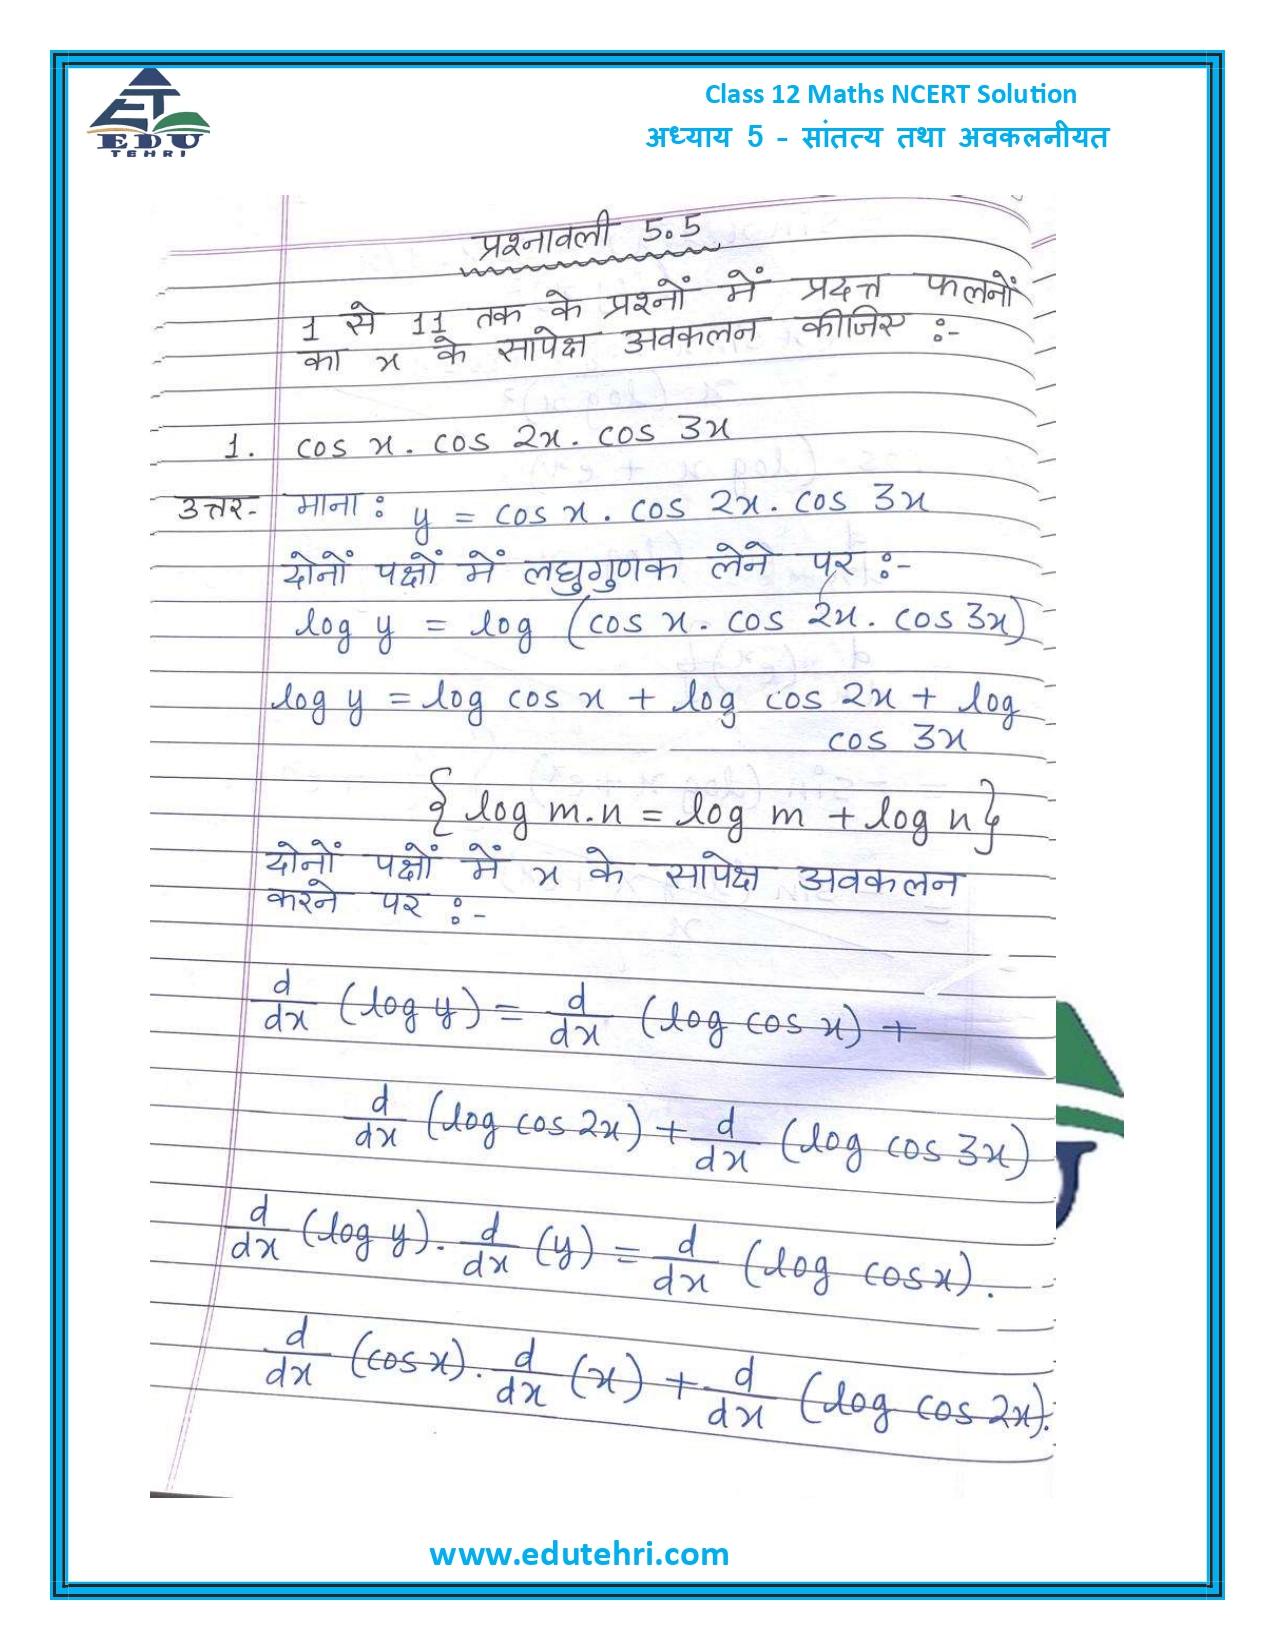 EDU
TEHRI
Class 12 Maths NCERT Solution
अध्याय 5 - सांतत्य तथा अवकलनीयत
प्रश्नावली 5.5
1 से 11 तक के प्रश्नों में प्रदत्त फलनों
का x के सापेक्ष अवकलन कीजिए :-
1. cos x . cos 2x . cos 3x
उत्तर- माना : y = cos x . cos 2x . cos 3x
दोनों पक्षों में लघुगुणक लेने पर :-
log y = log (cos x . cos 2x . cos 3x)
log y = log cos x + log cos 2x + log
cos 3x
{ log m.n = log m + log n }
दोनों पक्षों में x के सापेक्ष अवकलन
करने पर :-
d/dx (log y) = d/dx (log cos x) +
d/dx (log cos 2x) + d/dx (log cos 3x)
d/dx (log y) . d/dx (y) = d/dx (log cos x) .
d/dx (cos x) . d/dx (x) + d/dx (log cos 2x) .
www.edutehri.com